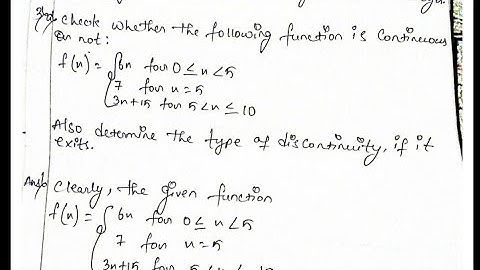 3rd. Check whether the following function is continuous
or not:
f(n) = { 6n for 0 ≤ n < 5
7 for n = 5
3n+15 for 5 < n ≤ 10
Also determine the type of discontinuity, if it
exits.
Ans: Clearly, the given function
f(n) = { 6n for 0 ≤ n < 5
7 for n = 5
3n+15 for 5 < n ≤ 10